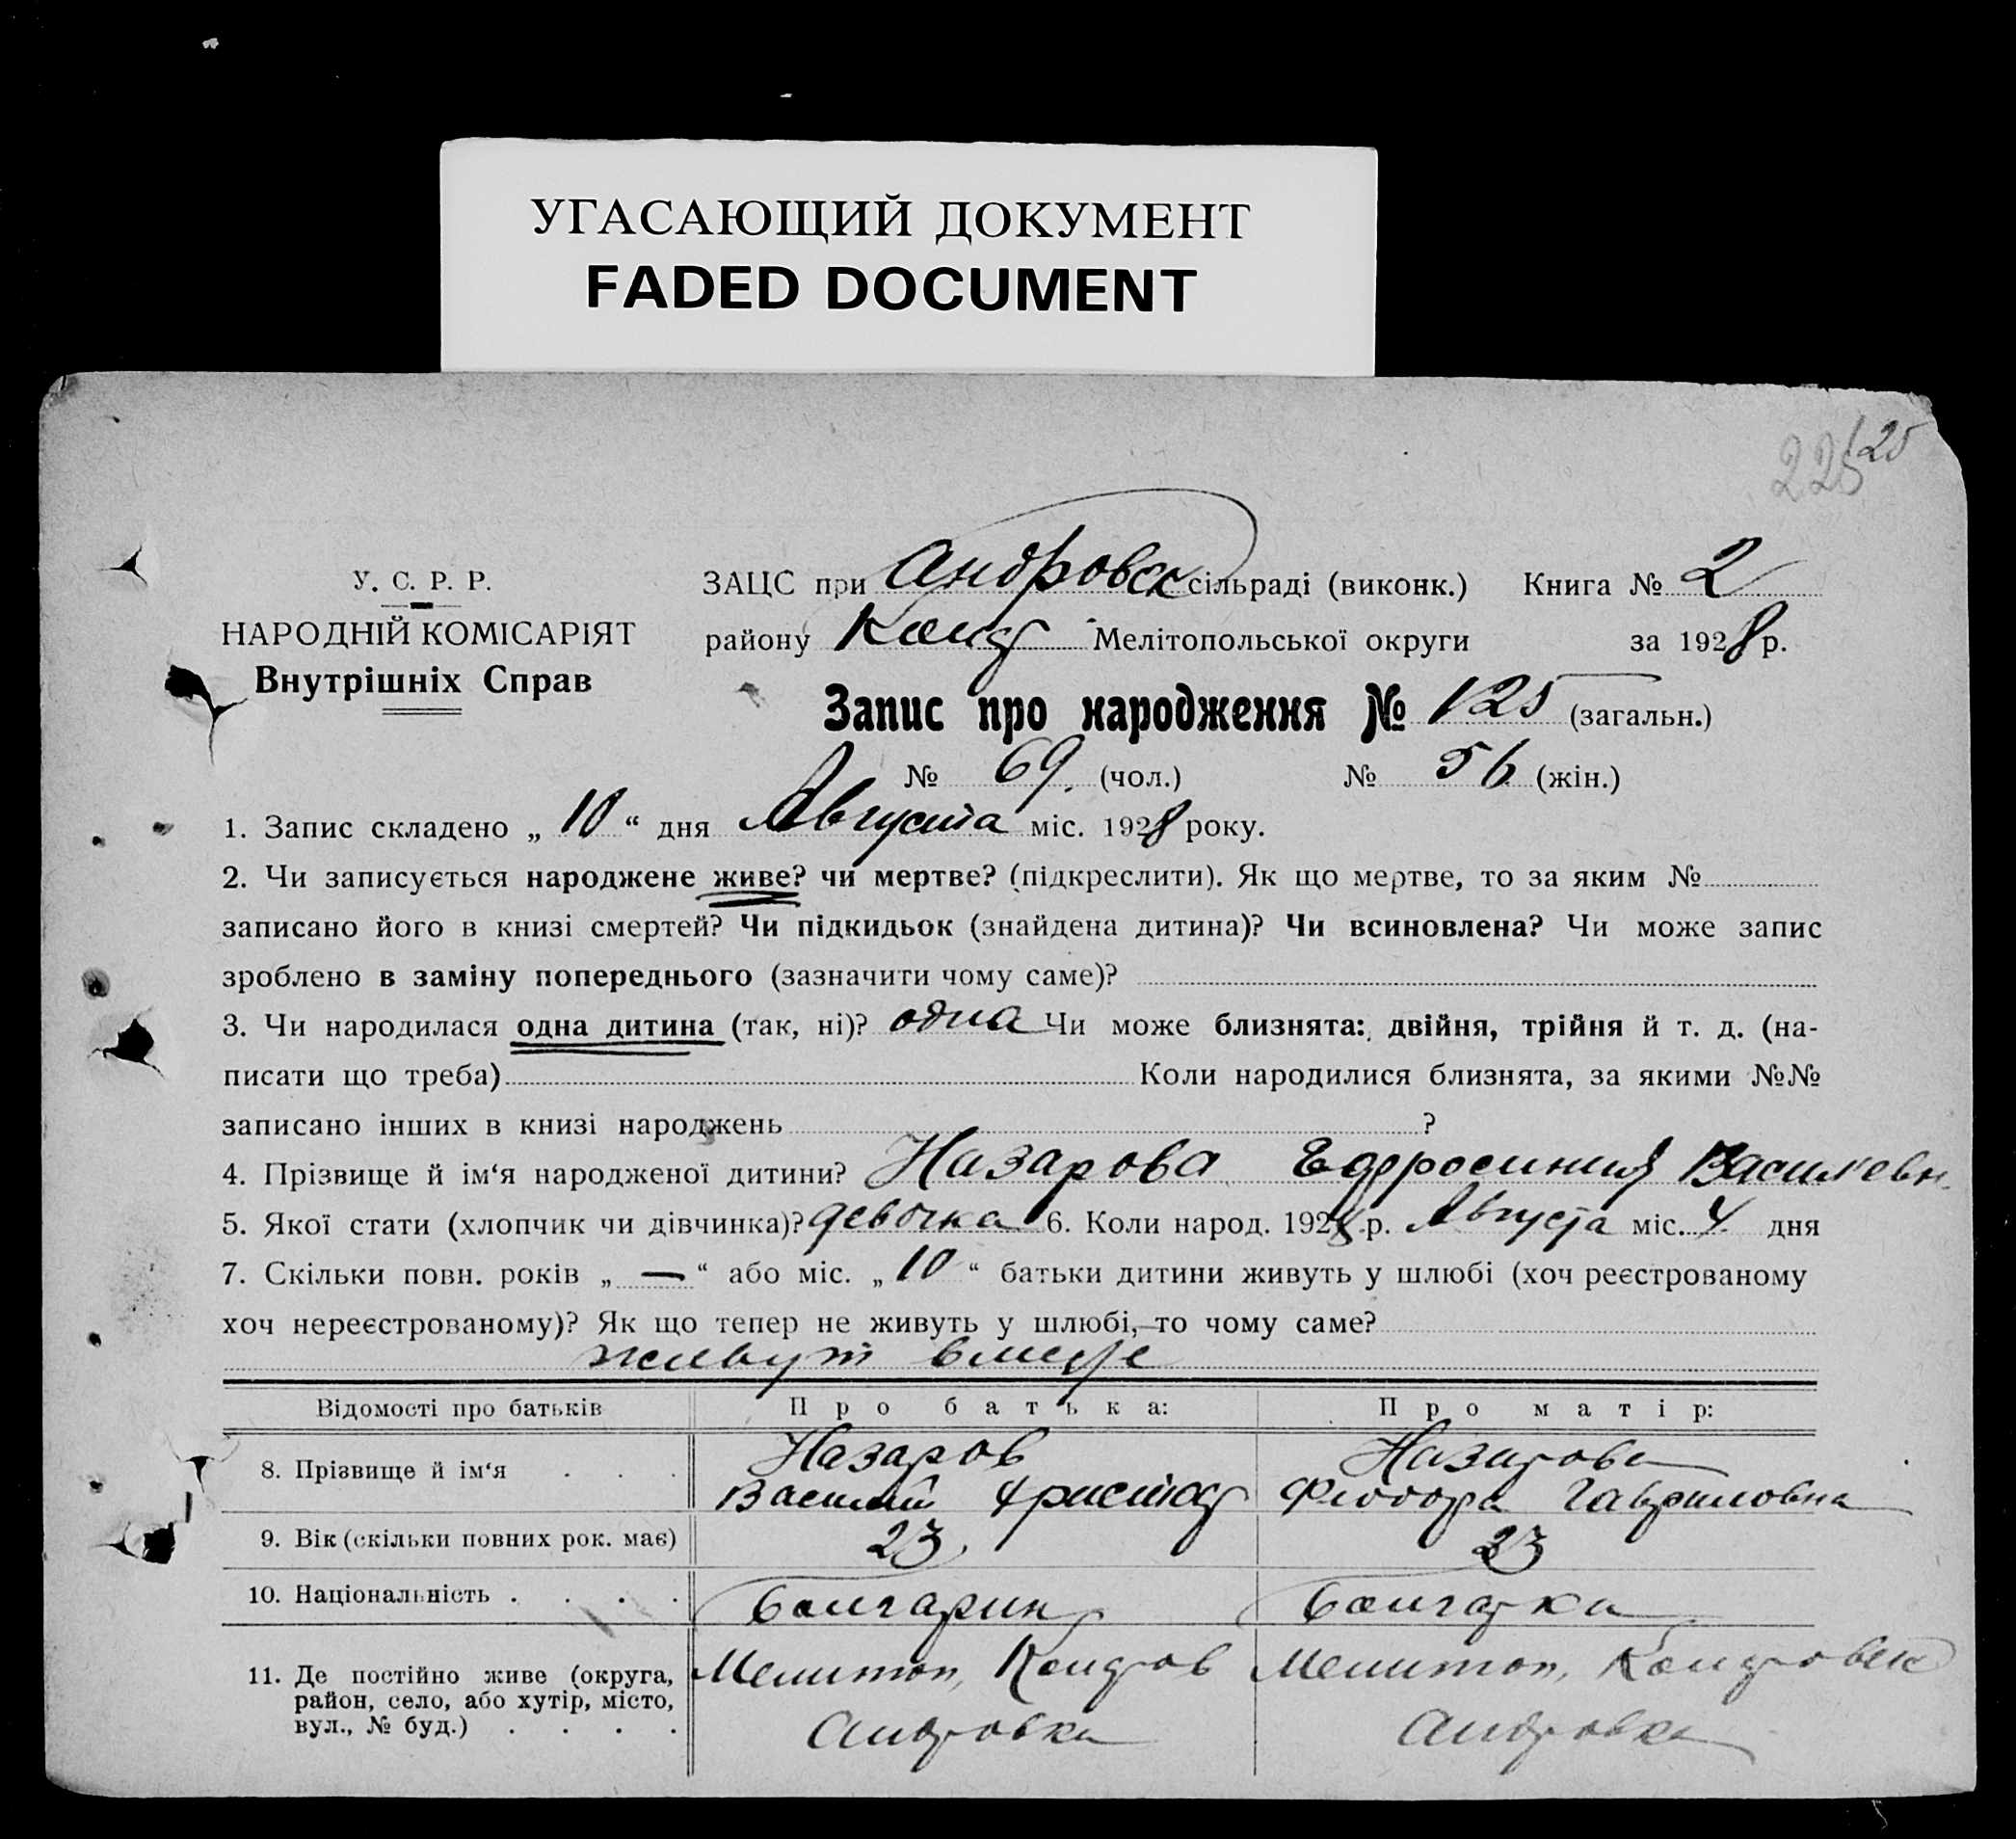 УГАСАЮЩИЙ ДОКУМЕНТ
FADED DOCUMENT
225 125
У. С. Р. Р.
НАРОДНІЙ КОМІСАРІЯТ
Внутрішніх Справ
ЗАЦС при Андровск сільраді (виконк.) Книга № 2
району Колар Мелітопольської округи за 1928 р.
Запис про народження № 125 (загальн.)
№ 69. (чол.) № 56 (жін.)
1. Запис складено „ 10 “ дня Августа міс. 1928 року.
2. Чи записується народжене живе? чи мертве? (підкреслити). Як що мертве, то за яким №
записано його в книзі смертей? Чи підкидьок (знайдена дитина)? Чи всиновлена? Чи може запис
зроблено в заміну попереднього (зазначити чому саме)?
3. Чи народилася одна дитина (так, ні)? одна Чи може близнята: двійня, трійня й т. д. (на-
писати що треба) Коли народилися близнята, за якими №№
записано інших в книзі народжень ?
4. Прізвище й ім‘я народженої дитини? Назарова Ефросиния Васильевн.
5. Якої стати (хлопчик чи дівчинка)? девочка 6. Коли народ. 1928 р. Августа міс. 4 дня
7. Скільки повн. років „ — “ або міс. „ 10 “ батьки дитини живуть у шлюбі (хоч реєстрованому
хоч нереєстрованому)? Як що тепер не живуть у шлюбі, то чому саме?
живут вместе
Відомості про батьків Про батька: Про матір:
8. Прізвище й ім‘я . . . Назаров Назарова
Василий Феодора Гавриловна
9. Вік (скільки повних рок. має) 23. 23
10. Національність . . . . болгарин болгарка
11. Де постійно живе (округа, Мелитоп, Мелитоп,
район, село, або хутір, місто,
вул., № буд.) . . . . Андровка Андровка